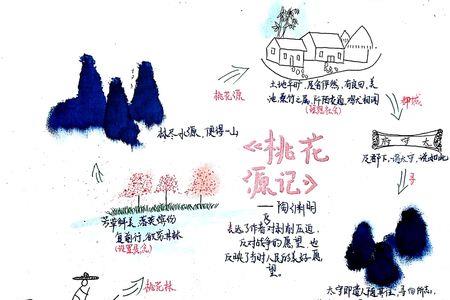 桃花源
土地平旷，屋舍俨然，有良田，美
池，桑竹之属，阡陌交通，鸡犬相闻
(理想社会)
郡城
林尽水源，便得一山
太守府
及郡下，诣太守，说如此
寻
《桃花
源记》
——陶渊明
芳草鲜美，落英缤纷
复前行，欲穷其林
(设置悬念)
表达了作者对剥削压迫，
反对战争的愿望，也
反映了当时人民的美好愿
望。
桃花林
太守即遣人随其往，寻向所志，